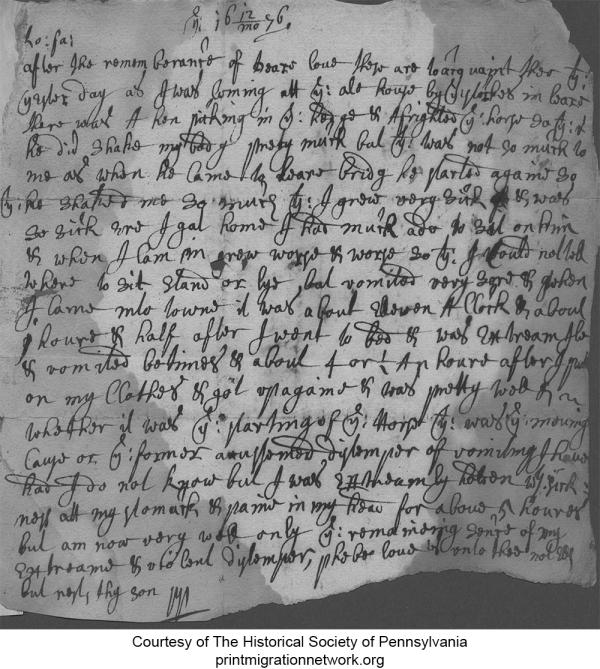 16 12/mo 76.
after the rememberance of deare love these are to acquaint thee yt:
yesterday as I was coming att ye: ale house by in deare
there was A hen picking in ye: hedge & Afrighted ye: horse so yt: &
he did shake my body pretty much but yt: was not so much to
me as when he came to deare bridg he started againe so
yt: he shaked me so much yt: I grew very sick & was
so sick ere I gat home I had much adoe to sit on him
& when I cam in grew worse & worse so yt: I could not tell
where to sit stand or lye, but vomited very sore & when
I came into towne it was about seven A Clock & about
houre & half after I went to bed & was Extreamly
& vomited betimes & about 4 or houre after I put
on my Clothes & got up againe & was pretty well &
whether it was ye: starting of ye: Horse yt: was ye: moving
Cause or ye: former distemper of vomiting I have
had I do not know but I was Extreamly wth: sick
ness att my stomack & paine in my head for above 5 houres
but am now very well only ye: remaineing sence of my
Extreame & violent distemper, phebes love is unto thee not
but rest, thy son
Courtesy of The Historical Society of Pennsylvania
printmigrationnetwork.org